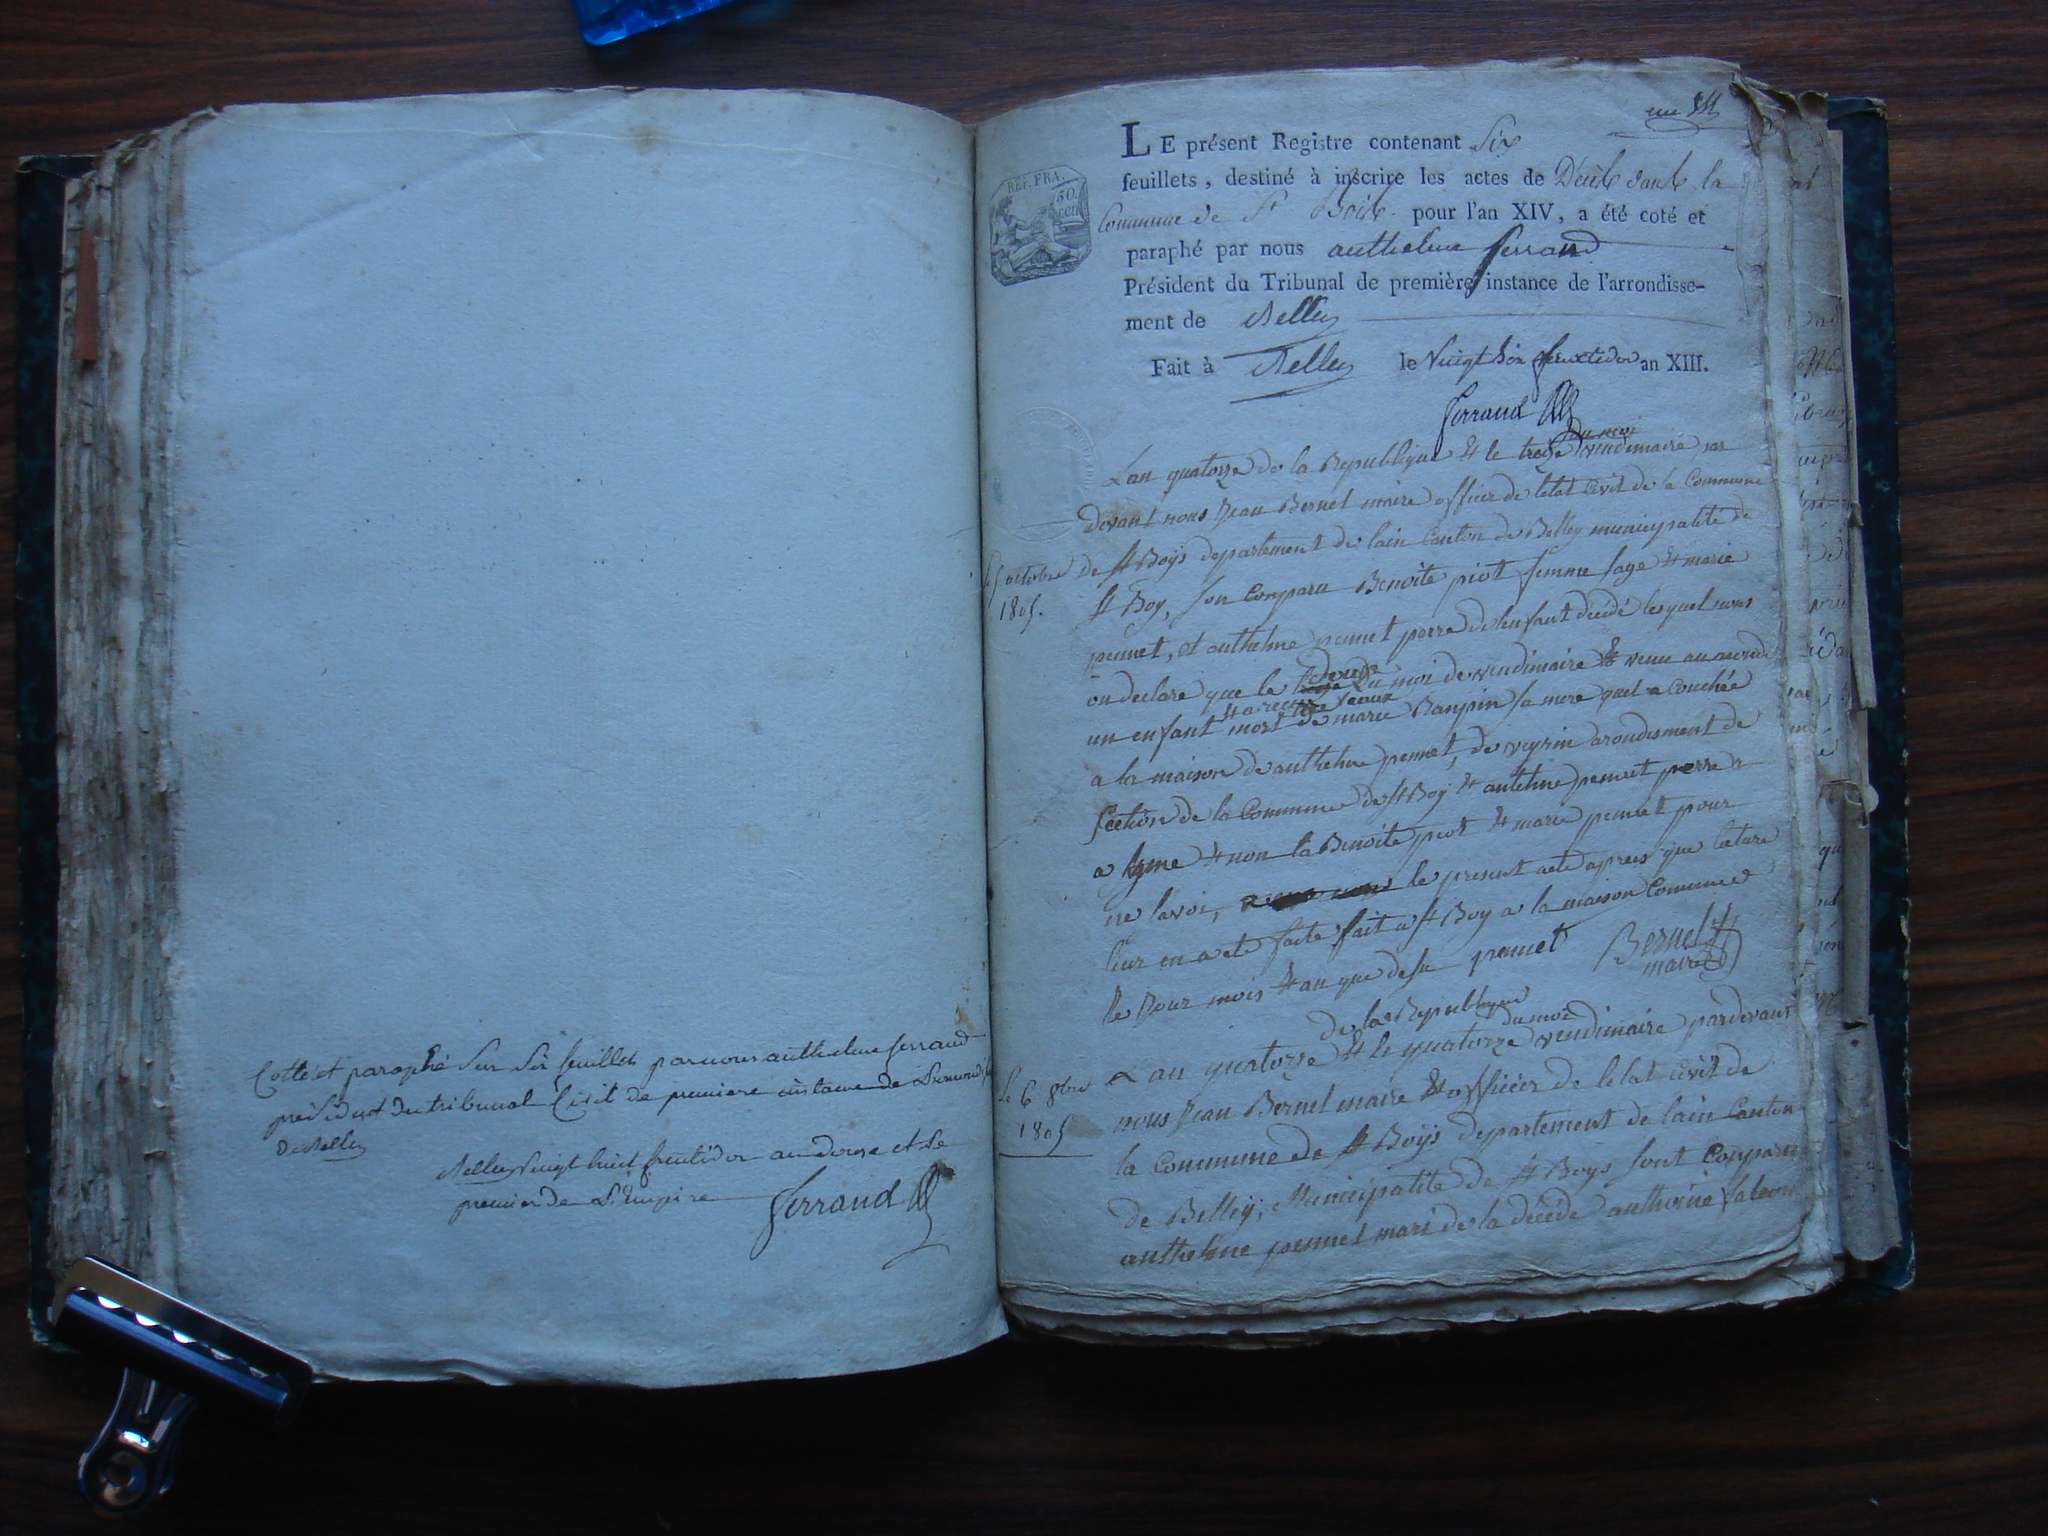 Cotté et paraphé sur six feuillets par nous anthelme ferrand
président du tribunal Civil de premiere instance de L'arrondist
de Belley
Belley vingt huit fructidor an douze et le
premier de L'Empire
ferrand
une
LE présent Registre contenant Six
feuillets, destiné à inscrire les actes de Décès dans la
Commune de St Bois pour l'an XIV, a été coté et
paraphé par nous anthelme ferrand
Président du Tribunal de première instance de l'arrondisse-
ment de Belley
Fait à Belley le Vingt six fructidor an XIII.
REP. FRA.
50
CEN
ferrand
du moi
Lan quatorze de la Republique & le treize vendimaire par
devant nous Jean Bernel maire officier de letat Civil de la Commune
le 5 octobre
1805.
de St Boÿs departement de lain Canton de Belley municipalité de
St Boy, son Comparu Benoite piot femme sage & marie
pennet, et anthelme pennet perre de lenfant décédé lesquel nous
on declare que le douze du moi de vendimaire & venu au monde
un enfant mort de marie Banpin sa mere quel a Couchée
a la maison de anthelme pennet, de veyrin arondisment de
section de la Commune de St Boy & antelme pennet perre
a signe & non la Benoite piot & marie pennet pour
ne savoir, le present acte apres que lecture
leur en a eté faite fait a St Boy a la maison Commune
le Jour mois & an que desu pennet Bernel
maire
de la Republique
du moi
Lan quatorze & le quatorze vendimaire pardevant
le 6 8bre
1805
nous Jean Bernel maire & officier de letat civil de
la Commune de St Boÿs departement de lain Canton
de Belley, Municipalité de St Boys sont Comparu
anthelme pennet mari de la décédé anthoine falcon